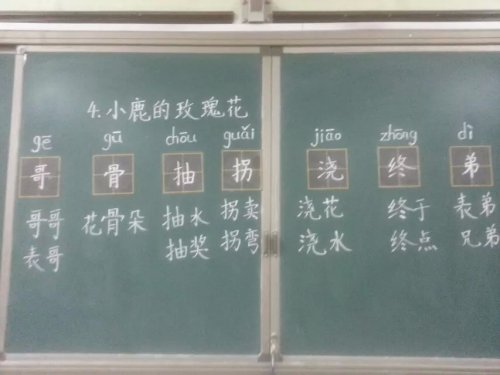 4.小鹿的玫瑰花
gē gū chōu guǎi jiāo zhōng dì
哥 骨 抽 拐 浇 终 弟
哥哥 花骨朵 抽水 拐卖 浇花 终于 表弟
表哥 抽奖 拐弯 浇水 终点 兄弟